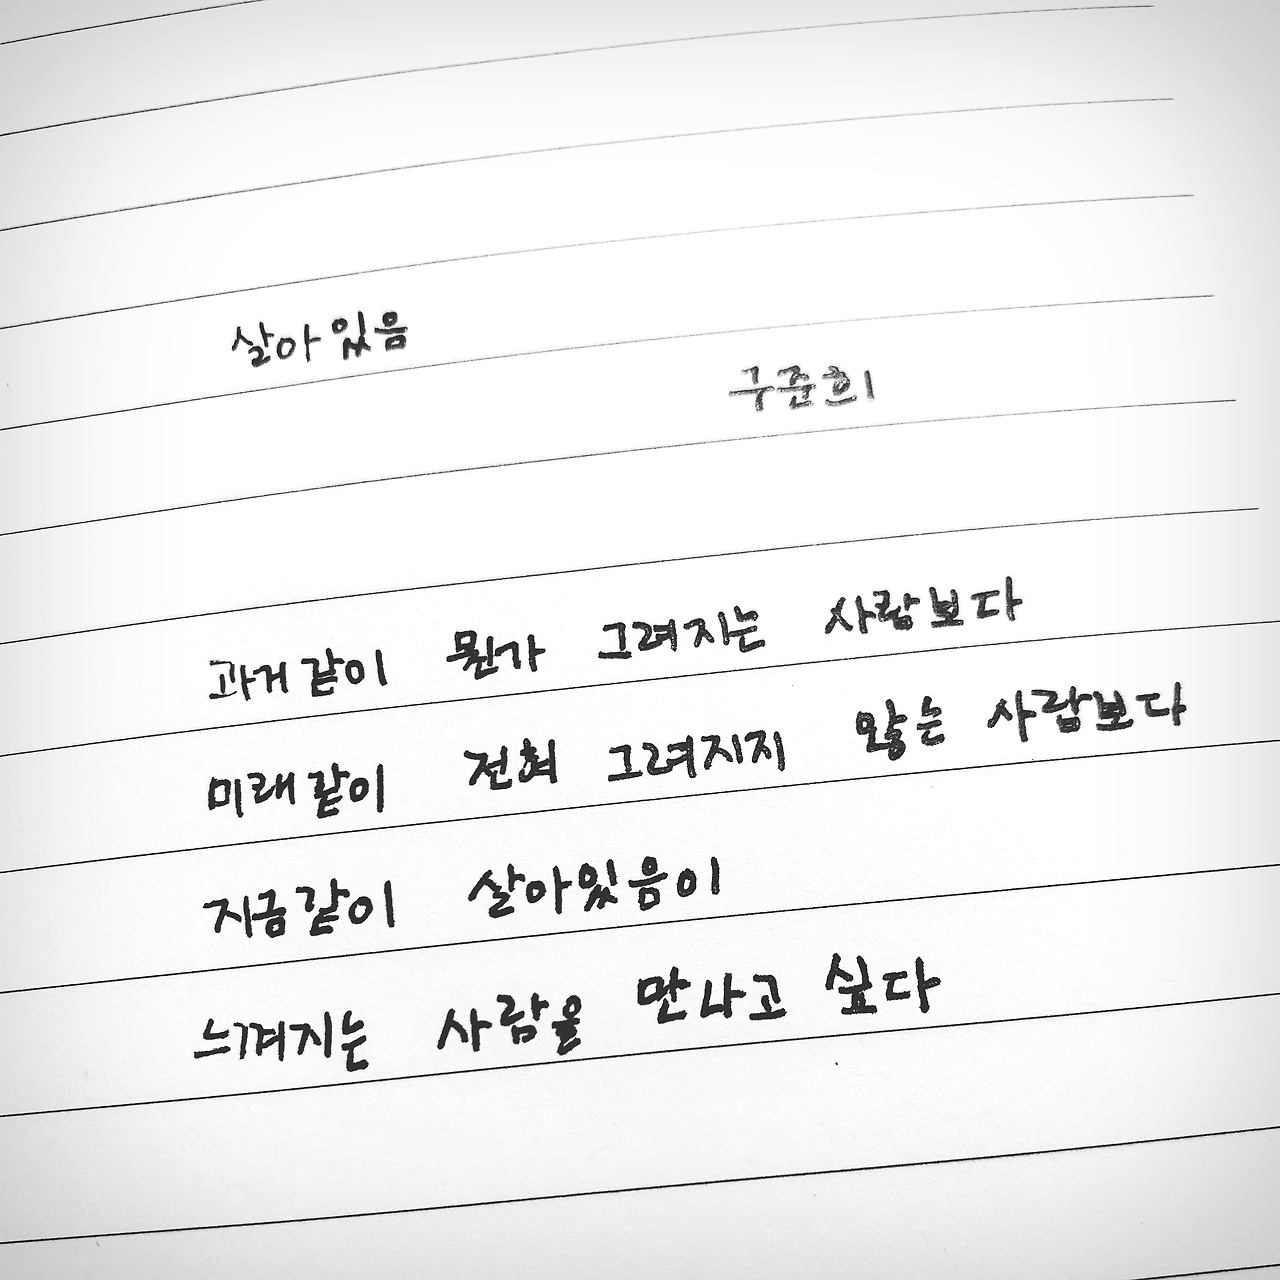 살아있음
구준회
과거같이 뭔가 그려지는 사람보다
미래같이 전혀 그려지지 않은 사람보다
지금같이 살아있음이
느껴지는 사람을 만나고 싶다